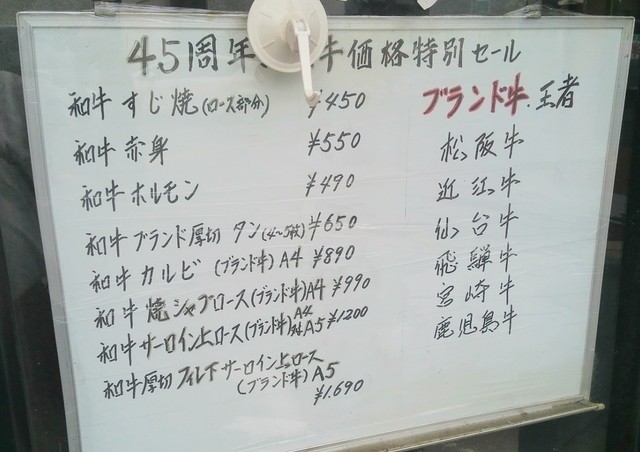 45周年 牛価格特別セール
和牛 すじ焼(ロース部分) ¥450
和牛 赤身 ¥550
和牛 ホルモン ¥490
和牛 ブランド厚切 タン(4〜5枚) ¥650
和牛 カルビ (ブランド牛) A4 ¥890
和牛 焼シャブロース(ブランド牛)A4 ¥990
和牛 サーロイン上ロース(ブランド牛)A4 A5 ¥1200
和牛厚切 フィレ下サーロイン上ロース
(ブランド牛) A5
¥1.690
ブランド牛.王者
松阪牛
近江牛
仙台牛
飛騨牛
宮崎牛
鹿児島牛